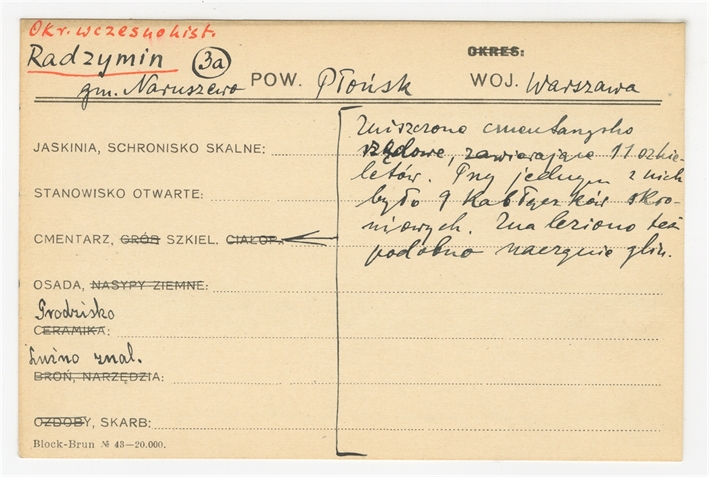 Okr. wczesnohist.
Radzymin 3a OKRES:
gm. Naruszewo POW. Płońsk WOJ. Warszawa
Zniszczone cmentarzysko
JASKINIA, SCHRONISKO SKALNE: rzędowe, zawierające 11 szkie-
letów. Przy jednym z nich
STANOWISKO OTWARTE: było 9 kabłączków skro-
niowych. Znaleziono też
CMENTARZ, GRÓB SZKIEL. CIAŁOP. podobno naczynie glin.
OSADA, NASYPY ZIEMNE:
Grodzisko
CERAMIKA:
Luźno znal.
BROŃ, NARZĘDZIA:
OZDOBY, SKARB:
Block-Brun № 43—20.000.